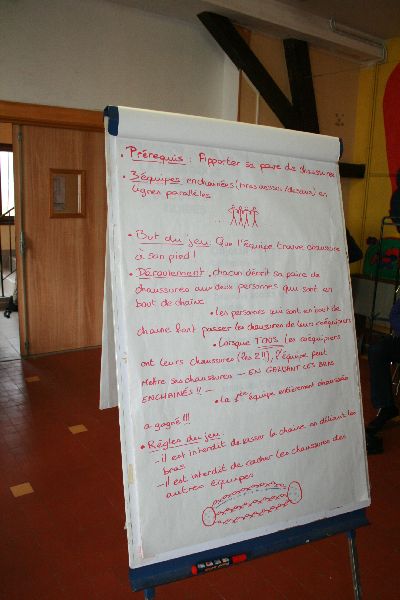 • Prérequis : Apporter sa paire de chaussures
• 3 équipes enchainées (bras dessus/dessous) en
lignes parallèles
• But du jeu: Que l'équipe trouve chaussure
à son pied !
• Déroulement, chacun décrit sa paire de
chaussures aux deux personnes qui sont en
bout de chaîne
• les personnes qui sont en bout de
chaine font passer les chaussures de leurs coéquipiers
• Lorsque TOUS les coéquipiers
ont leurs chaussures (les 2!!), l'équipe peut
mettre ses chaussures — EN GARDANT LES BRAS
ENCHAINÉS !! —
• la 1ère équipe entièrement chaussée
a gagné !!!
• Règles du jeu
- il est interdit de casser la chaine en déliant les
bras
- Il est interdit de cacher les chaussures des
autres équipes